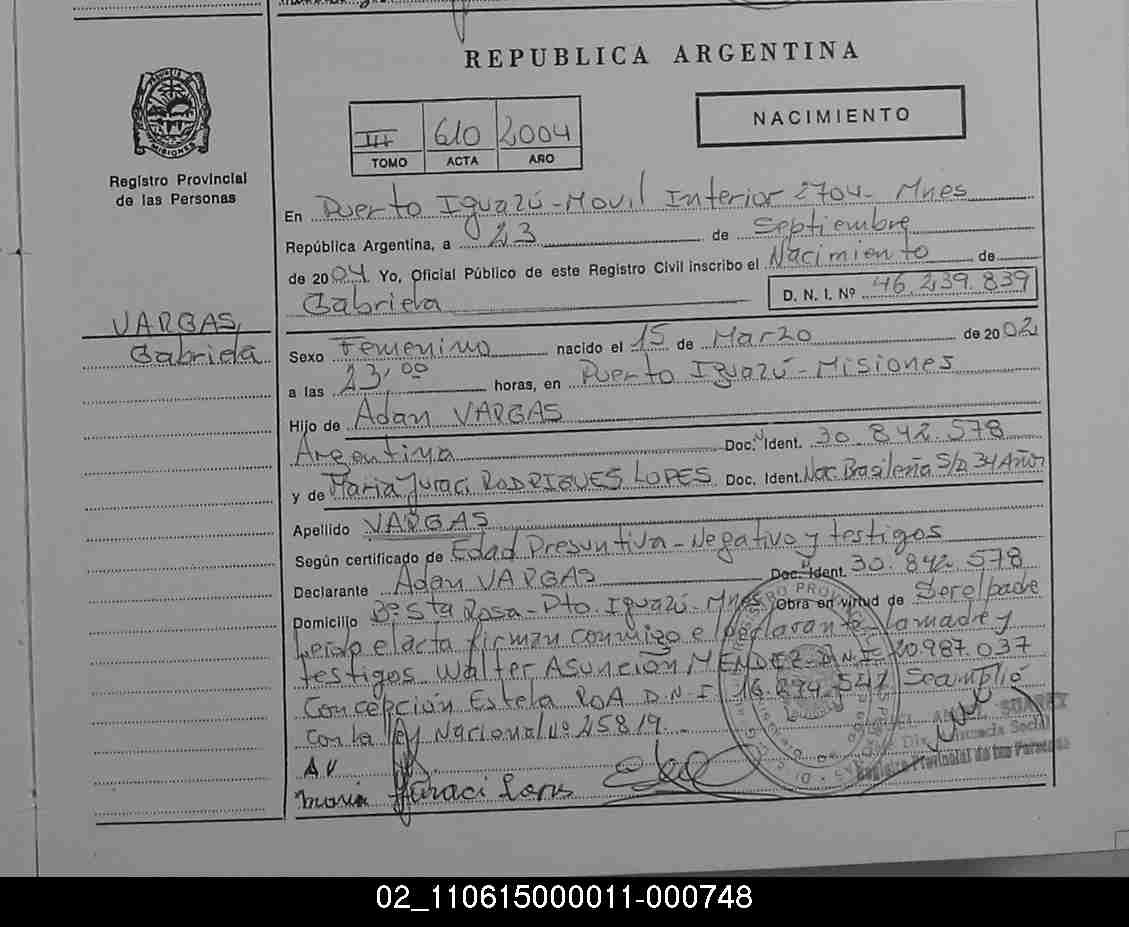 REPUBLICA ARGENTINA
PROVINCIA DE
MISIONES
Registro Provincial
de las Personas
III 610 2004
TOMO ACTA AÑO
NACIMIENTO
En Puerto Iguazú - Movil Interior 2704 - Mnes
República Argentina, a 23 de Septiembre
de 2004 Yo, Oficial Público de este Registro Civil inscribo el Nacimiento de
Gabriela D. N. I. Nº 46.239.839
VARGAS,
Gabriela
Sexo Femenino nacido el 15 de Marzo de 2002
a las 23,00 horas, en Puerto Iguazú - Misiones
Hijo de Adan VARGAS
Argentina Doc. Ident. 30.842.578
y de Maria Juraci RODRIGUES LOPES Doc. Ident. Nac. Brasileña S/D 34 Años
Apellido VARGAS
Según certificado de Edad Presuntiva - Negativo y testigos
Declarante Adan VARGAS Doc. Ident. 30.842.578
Domicilio Bº Sta Rosa - Pto. Iguazú - Mnes Obra en virtud de Ser el padre
Leida el acta firman conmigo el declarante la madre y
testigos Walter Asunción MENDEZ D.N.I 20.987.037
Concepción Estela ROA D.N.I 16.874.542 Se cumplió
con la ley Nacional Nº 25819.
AV
Maria Juraci Lopes
SUAREZ
Registro Provincial de las Personas
02_110615000011-000748